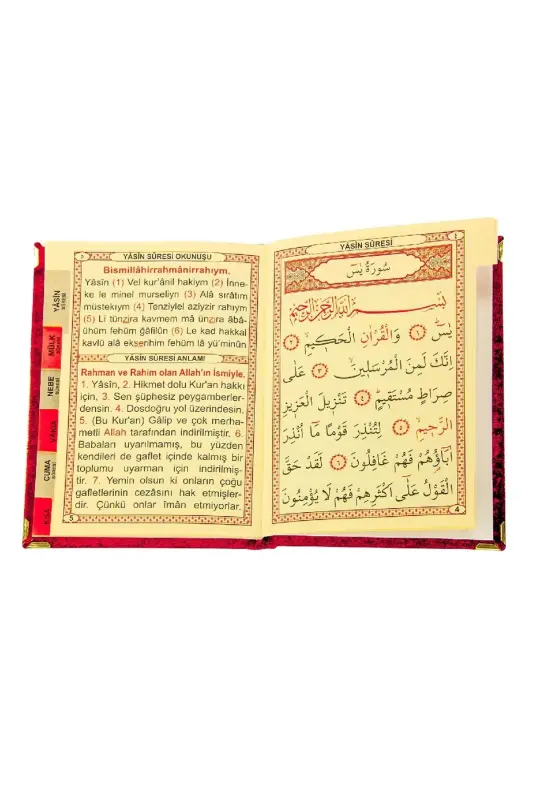 YÂSÎN SÛRESİ
MÜLK SÛRESİ
NEBE SÛRESİ
VAKIA
CUMA SÛRESİ
KISA
YÂSÎN SÛRESİ OKUNUŞU
Bismillâhirrahmânirrahıym.
Yâsîn (1) Vel kur'ânil hakiym (2) İnne-
ke le minel murseliyn (3) Alâ sırâtım
müstekıym (4) Tenziylel aziyzir rahıym
(5) Li tünzira kavmem mâ ünzira âbâ-
ühüm fehüm ğâfilûn (6) Le kad hakkal
kavlü alâ ekserihim fehüm lâ yü'minûn
YÂSÎN SÛRESİ ANLAMI
Rahman ve Rahim olan Allah'ın İsmiyle.
1. Yâsîn, 2. Hikmet dolu Kur'an hakkı
için, 3. Sen şüphesiz peygamberler-
densin. 4. Dosdoğru yol üzerindesin.
5. (Bu Kur'an) Gâlip ve çok merha-
metli Allah tarafından indirilmiştir. 6.
Babaları uyarılmamış, bu yüzden
kendileri de gaflet içinde kalmış bir
toplumu uyarman için indirilmiş-
tir. 7. Yemin olsun ki onların çoğu
gafletlerinin cezasını hak etmişler-
dir. Çünkü onlar îmân etmiyorlar.
5
٤
YÂSÎN SÛRESİ
سُورَةُ يٰسٓ
بِسْمِ اللّٰهِ الرَّحْمٰنِ الرَّحِيمِ
يٰسٓ ١ وَالْقُرْاٰنِ الْحَكِيمِ ٢
اِنَّكَ لَمِنَ الْمُرْسَلِينَ ٣ عَلٰى
صِرَاطٍ مُسْتَقِيمٍ ٤ تَنْزِيلَ الْعَزِيزِ
الرَّحِيمِ ٥ لِتُنْذِرَ قَوْمًا مَٓا اُنْذِرَ
اٰبَٓاؤُهُمْ فَهُمْ غَافِلُونَ ٦ لَقَدْ حَقَّ
الْقَوْلُ عَلٰٓى اَكْثَرِهِمْ فَهُمْ لَا يُؤْمِنُونَ
4